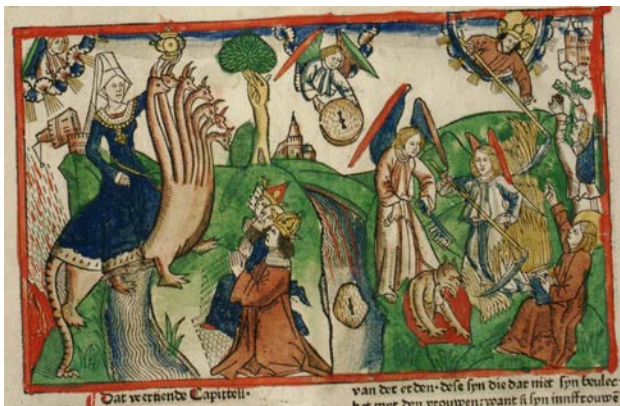 Dat veertiende Capittell·
van der erden· dese syn die dat niet syn beulec
ket mit den vrouwen: want si syn innffrouwē